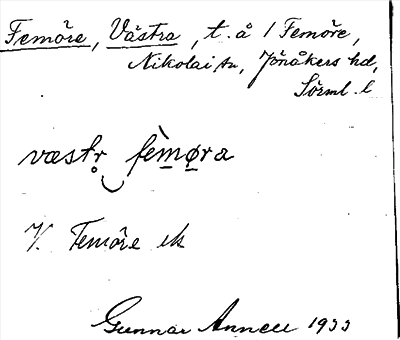 Femöre, Västra, t. å 1 Femöre,
Nikolai sn, Jönåkers hd,
Sörml. l
væstr̥ fèmøra
V. Femöre ek
Gunnar Annell 1933